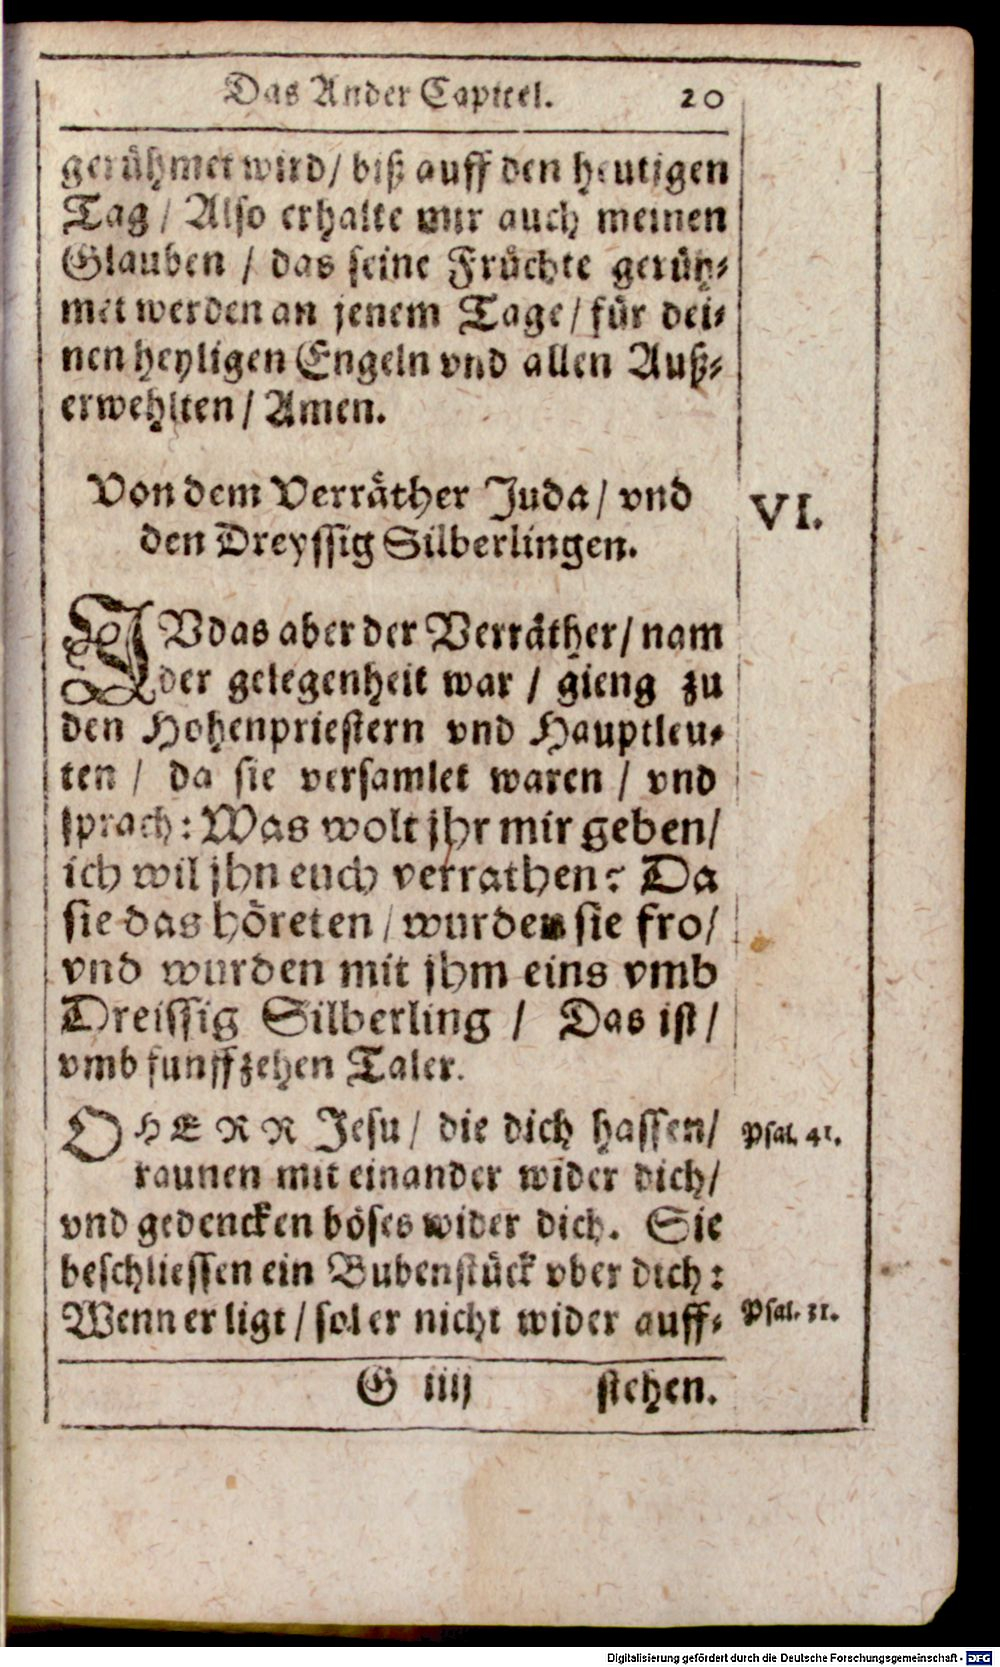 Das Ander Capittel. 20
gerühmet wird/ biß auff den heutigen
Tag/ Also erhalte mir auch meinen
Glauben / das seine Früchte gerüh-
met werden an jenem Tage/ für dei-
nen heyligen Engeln vnd allen Auß-
erwehlten/ Amen.
Von dem Verräther Juda/ vnd
den Dreyssig Silberlingen.
VI.
JVdas aber der Verräther/ nam
der gelegenheit war / gieng zu
den Hohenpriestern vnd Hauptleu-
ten / da sie versamlet waren / vnd
sprach: Was wolt jhr mir geben/
ich wil jhn euch verrathen? Da
sie das höreten/ wurden sie fro/
vnd wurden mit jhm eins vmb
Dreissig Silberling / Das ist/
vmb funffzehen Taler.
O HERR Jesu/ die dich hassen/
Psal. 41.
raunen mit einander wider dich/
vnd gedencken böses wider dich. Sie
beschliessen ein Bubenstück vber dich:
Wenn er ligt/ sol er nicht wider auff-
G iiij stehen.
Digitalisierung gefördert durch die Deutsche Forschungsgemeinschaft - DFG